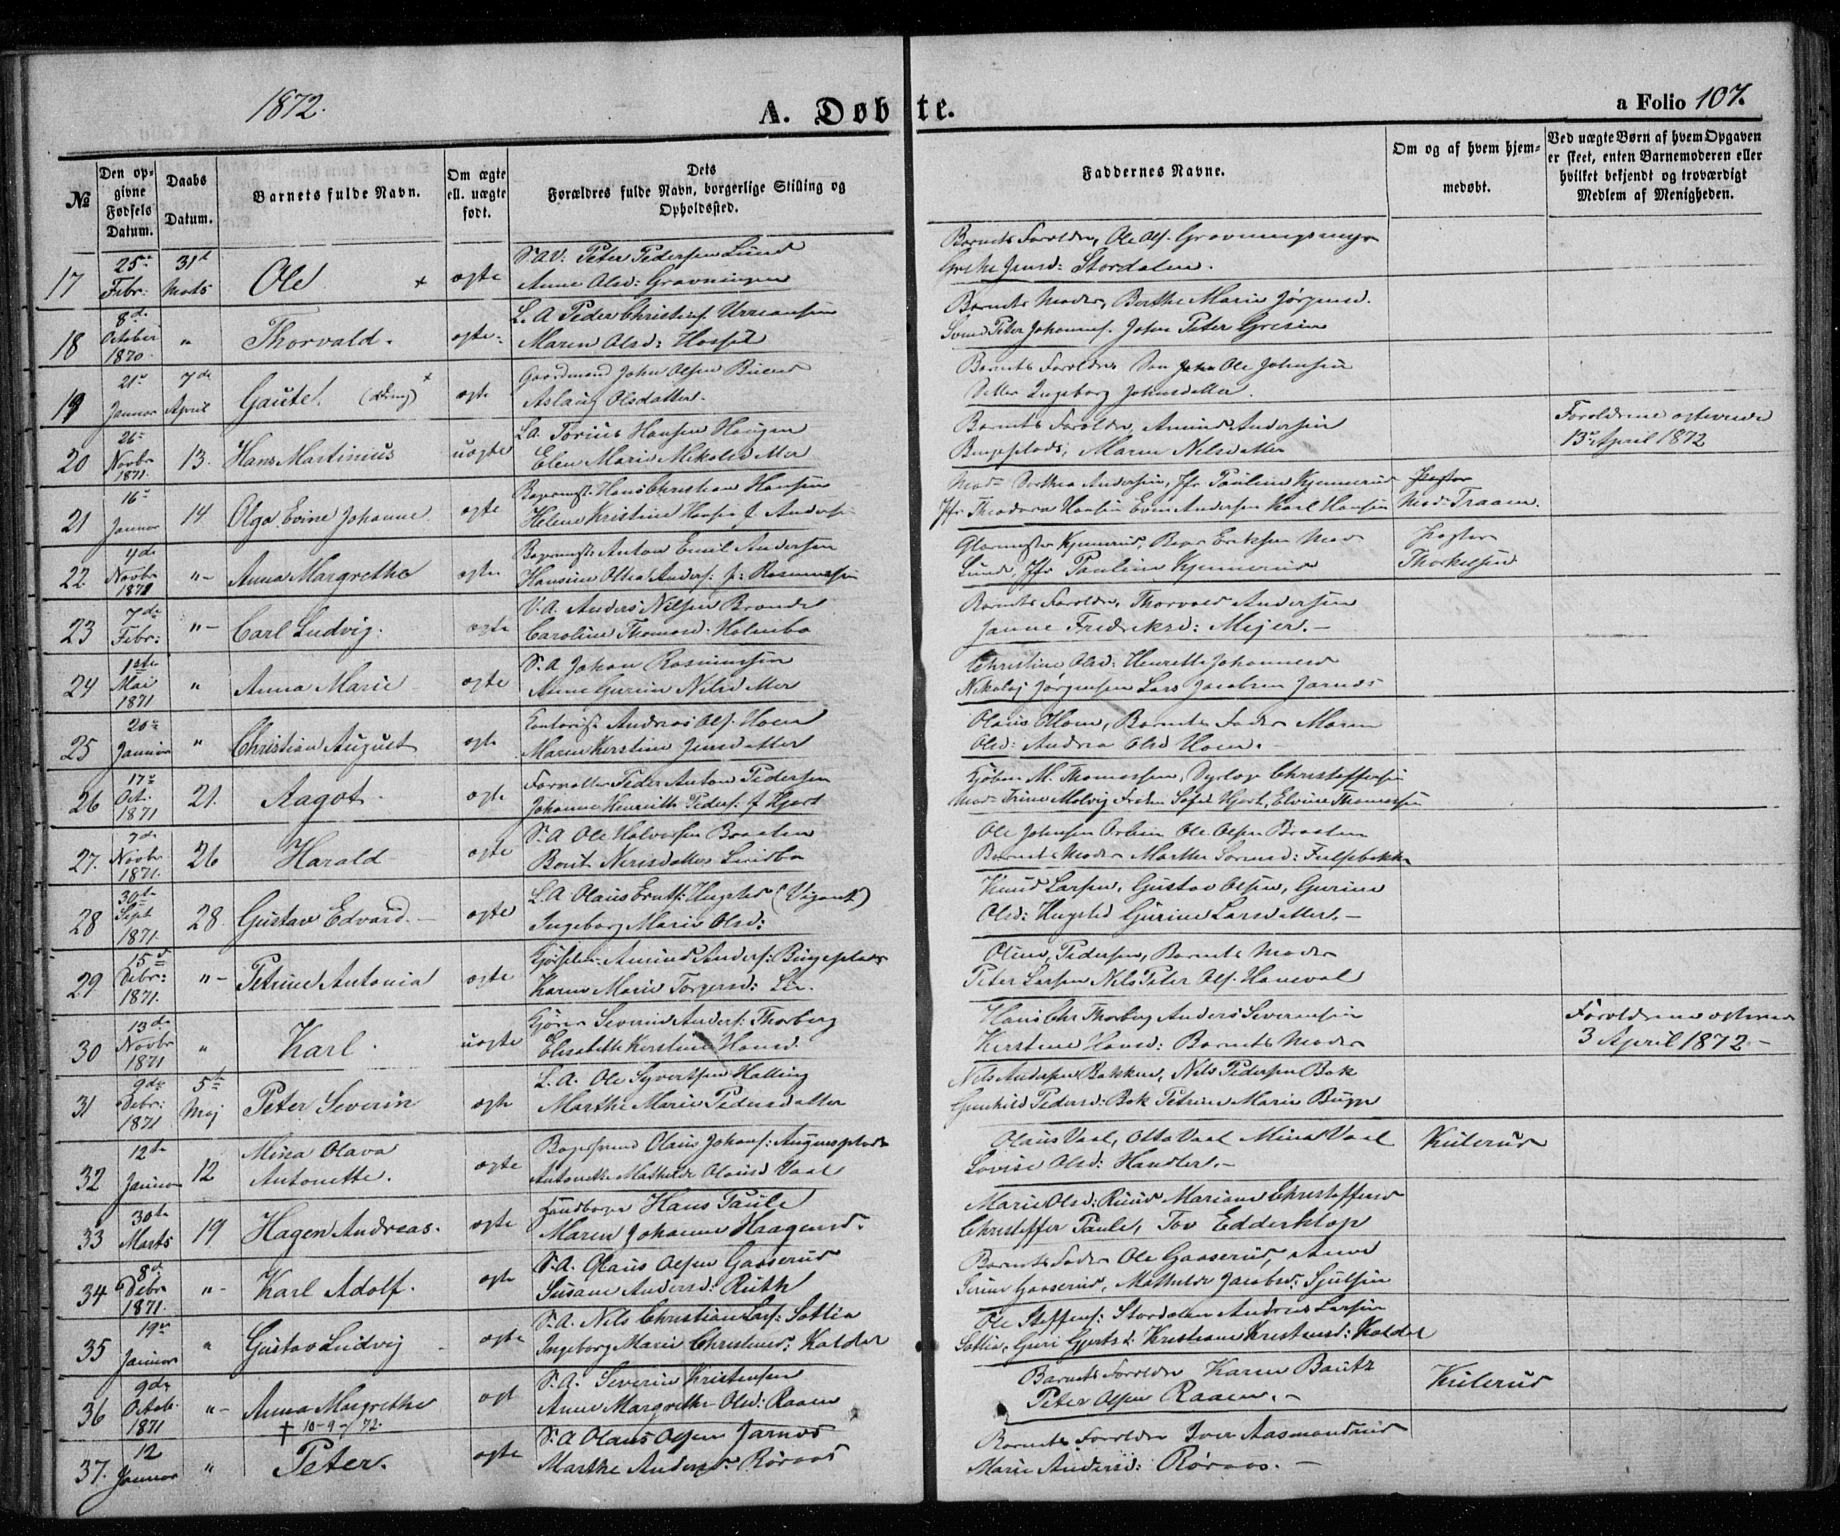 1872.
A. Døbte.
a Folio 107.
№
Den opgivne Fødsels Datum.
Daabs Datum.
Barnets fulde Navn.
Om ægte ell. uægte født.
Dets Forældres fulde Navn, borgerlige Stilling og Opholdssted.
Faddernes Navne.
Om og af hvem hjemmedøbt.
Ved uægte Børn af hvem Opgaven er skeet, enten Barnemoderen eller hvilket bekjendt og troværdigt Medlem af Menigheden.
17 25 Febr: 31 Marts Ole ægte Peter Pedersen Lund
Anne Olsd: Gravningen
Barnets Forældre, Ole Ols.
Grethe Jensd: Stordalen.
18 8de October 1870 " Thorvald. ægte L. A. Peder Christians.
Maren Olsd:
Barnets Moder, Berthe Marie Jørgensd.
Svend Peter Johannes. John Peter
19 21 Januar 7de April Gaute. ægte Gaardmand John Olsen
Aslaug Olsdatter.
Barnets Forældre Ole Johnsen
Datter Ingeborg Johnsdatter.
20 26 Novbr 1871 13. Hans Martinius uægte L.A. Torius Hansen Haugen
Elen Marie Nikolsdatter
Barnets Forældre, Amund Andersen
Bingeplads, Maren Nilsdatter
Forældrene ægteviede
13de April 1872
21 16 Januar 14 Olga Evine Johanne ægte Bagermst. Hans Christian Hansen
Helene Kristine
Mad. Dorthea Andersen, Jfr Pauline Kjennerud
Jfr. Theodora Hansen Even Andersen Karl Hansen
Mad: Traaen.
22. 4de Novbr 1871 "- Anna Margrethe ægte Bagermst. Anton Emil Andersen
Hansine Othea Anders. f: Rasmussen
Glarmester Kjennerud, Bager Eriksen Mad
Lunde, Jfr Pauline Kjennerud
Thorkelsen
23 7de Febr: "- Carl Ludvig. ægte Anders Nilsen
Caroline Thomasd: Holmbo
Barnets Forældre, Thorvald Andersen
Janne Fredriksd: Mejer.-
24 1ste Mai 1871 " Anna Marie ægte S. A. Johan Rasmussen
Anne Gurine Nilsdatter
Christine Olsd: Henrette Johannesd
Nikolaj Jørgensen Lars Jacobsen Jarnæs
25 20 Januar " Christian August ægte Kontorist Andreas Ols. Hoen
Maren Kerstine Jensdatter
Olaus Hoen, Barnets Fader Maren
Olsd: Andrea Olsd Hoen.-
26 17 Oct. 1871 21. Aagot. ægte Forvalter Peder Anton Pedersen
Johanne Henriette Peders: f. Hjort
Kjøbm M. Thomassen, Christoffersen
Mad: Trine Molvig Frøken Sofie Hjort, Elvine Thomassen
27. 7de Novbr 1871. 26 Harald ægte S. A. Ole Halvorsen Braaten
Berit Nersdatter Lindbo
Ole Johnsen Ole Olsen Braaten
Barnets Moder Marthe Sørensd:
28 30te Sept 1871. 28 Gustav Edvard.- ægte L. A. Olaus Hugsted
Ingeborg Marie Olsd:
Knud Larsen, Gustav Olsen, Gurine
Olsd: Hugsted Gurine Larsdatter.-
29 15 Debr: 1871. "- Petrine Antonia ægte Amund Anders: Bingeplads
Karen Marie Torgersd: Lie.
Oline Pedersen, Barnets Moder
Peter Larsen Nils Peter Ols. Haneval
30 13de Novbr 1871 " Karl. uægte Severin Anders: Thorberg
Elisabeth Kerstine Hansd.
Hans Chr Thorberg Anders Severinsen
Kerstine Hansd: Barnets Moder
Forældrene ægteviede
3 April 1872 -
31 9de Debr: 1871 5te Maj Peter Severin ægte L. A. Ole Syvertsen Halling
Marthe Marie Pedersdatter
Nils Andersen Bakken, Nils Pedersen Bak
Gunhild Pedersd: Bak Petrine Marie Bugge
32 12te Januar 12 Mina Olava Antonette. ægte Olaus Johans:
Antonette Mathilde Olausd Vaal
Olaus Vaal, Otto Vaal Mina Vaal
Lovise Olsd: Handler.-
Kulerud
33 30te Marts 19. Hagen Andreas. ægte Hans Paule
Maren Johanne Haagensd.
Marie Olsd: Ruud Mariane Christoffersd
Christoffer Paule, Tov Edderklop
34 8d Debr 1871. "- Karl Adolf. ægte S. A. Olaus Olsen Gaaserud
Susane Andersd: Ruth
Barnets Fader Ole Gaaserud, Anne
Gaaserud, Mathilde Jacobsd:
35 19 Januar " Gustav Ludvig ægte S. A. Nils Christian Lars: Sættia
Ingeborg Marie Christensd: Koldal
Ole Steffens: Stordalen Andreas Larsen
Sættia, Guri Gjertsd: Kristiane Kristensd: Koldal
36 9de Octob. 1871 "- Anna Margrethe ægt S. A. Severin Kristensen
† 10-9-/72.
Anne Margrethe Olsd: Raaen
Barnets Forældre Karen Bautz
Peter Olsen Raaen.-
Kulerud
37. 12 Januar " Peter. ægte S. A. Olaus Olsen Jarnæs
Marthe Andersd: Røraas
Barnets Forældre Iver Aasmundrud
Marie Andersd: Røraas.-